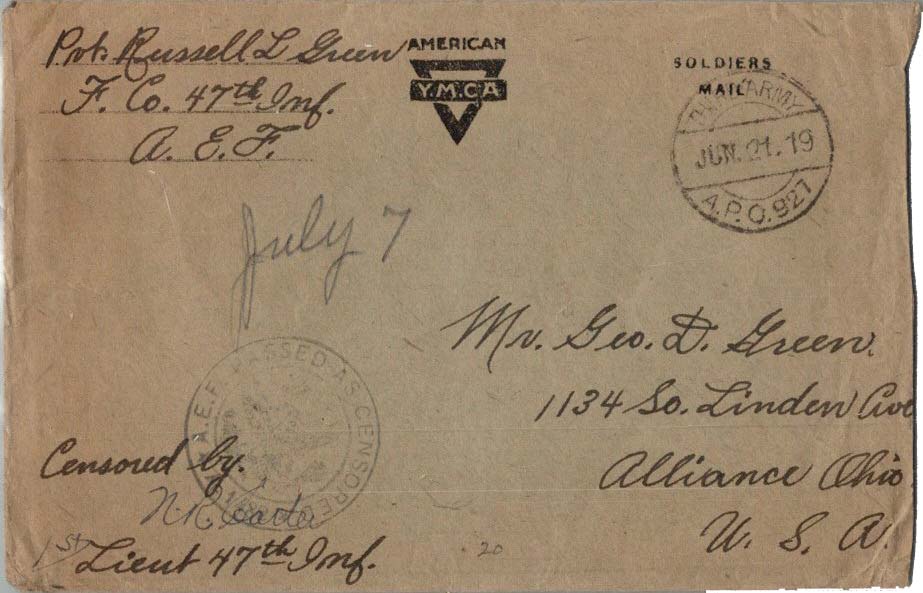 Pvt. Russell L Green
F. Co. 47th Inf.
A. E. F.
AMERICAN
Y.M.C.A
SOLDIERS
MAIL
THIRD ARMY
JUN. 21. 19
A.P.O. 927
July 7
Mr. Geo. D. Green.
1134 So. Linden Ave
Alliance Ohio
U. S. A.
A.E.F. PASSED AS CENSORED
Censored by.
N.R. Carter
1st Lieut 47th Inf.
20